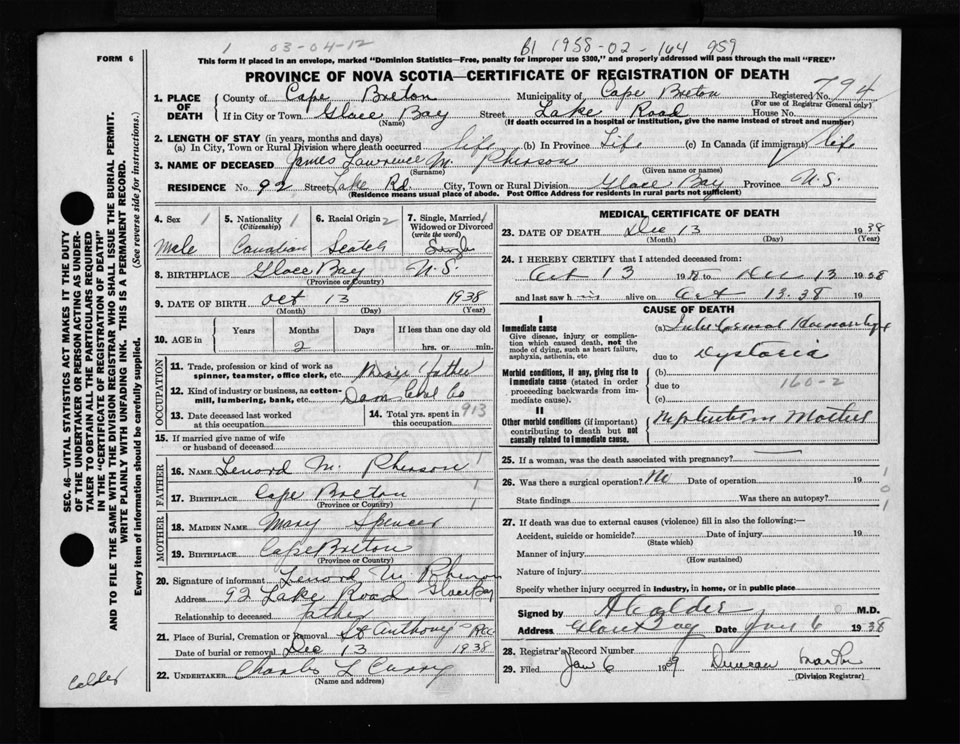 1 03-04-12 B1 1958-02-164 959
FORM 6
This form if placed in an envelope, marked "Dominion Statistics—Free, penalty for improper use $300," and properly addressed will pass through the mail "FREE"
PROVINCE OF NOVA SCOTIA—CERTIFICATE OF REGISTRATION OF DEATH
1. PLACE OF DEATH
County of Cape Breton Municipality of Cape Breton Registered No. 794
(For use of Registrar General only)
If in City or Town Glace Bay Street Lake Road House No.
(Name) (If death occurred in a hospital or institution, give the name instead of street and number)
2. LENGTH OF STAY (in years, months and days)
(a) In City, Town or Rural Division where death occurred life (b) In Province Life (c) In Canada (if immigrant) life
3. NAME OF DECEASED James Lawrence Mc Pherson
(Surname) (Given name or names)
RESIDENCE No. 92 Street Lake Rd. City, Town or Rural Division Glace Bay Province N.S.
(Residence means usual place of abode. Post Office Address for residents in rural parts not sufficient)
4. Sex 1 Male
5. Nationality 1 (Citizenship) Canadian
6. Racial Origin 2 Scotch
7. Single, Married, Widowed or Divorced 1 (write the word) Single
8. BIRTHPLACE Glace Bay N.S.
(Province or Country)
9. DATE OF BIRTH Oct 13 1938
(Month) (Day) (Year)
10. AGE in Years Months 2 Days If less than one day old
hrs. or min.
OCCUPATION
11. Trade, profession or kind of work as spinner, teamster, office clerk, etc. Miner father
12. Kind of industry or business, as cotton-mill, lumbering, bank, etc. Dom Coal Co
13. Date deceased last worked at this occupation
14. Total yrs. spent in this occupation 913
15. If married give name of wife or husband of deceased
FATHER
16. NAME Lenord Mc Pherson
17. BIRTHPLACE Cape Breton
(Province or Country)
MOTHER
18. MAIDEN NAME Mary Spencer
19. BIRTHPLACE Cape Breton
(Province or Country)
20. Signature of informant Lenord Mc Pherson
Address 92 Lake Road Glace Bay
Relationship to deceased father
21. Place of Burial, Cremation or Removal St Anthony's
Date of burial or removal Dec 13 1938
22. UNDERTAKER Charles L Curry
(Name and address)
MEDICAL CERTIFICATE OF DEATH
23. DATE OF DEATH Dec 13 1938
(Month) (Day) (Year)
24. I HEREBY CERTIFY that I attended deceased from:
Oct 13 1938 to Dec 13 1938
and last saw him alive on Oct 13.38 19
CAUSE OF DEATH
I
Immediate cause
Give disease, injury or complication which caused death, not the mode of dying, such as heart failure, asphyxia, asthenia, etc
(a) Intercranial Hemorrhage
due to Dystocia
Morbid conditions, if any, giving rise to immediate cause (stated in order proceeding backwards from immediate cause).
(b)
due to 160-2
II
Other morbid conditions (if important) contributing to death but not causally related to immediate cause.
Nephritis in Mother
25. If a woman, was the death associated with pregnancy?
26. Was there a surgical operation? No Date of operation 19
State findings Was there an autopsy?
27. If death was due to external causes (violence) fill in also the following:—
Accident, suicide or homicide? Date of injury 19
(State which)
Manner of injury
(How sustained)
Nature of injury
Specify whether injury occurred in industry, in home, or in public place
Signed by A Calder M.D.
Address Glace Bay Date Jan 6 1938
28. Registrar's Record Number
29. Filed Jan 6 1939 Duncan
(Division Registrar)
SEC. 46—VITAL STATISTICS ACT MAKES IT THE DUTY OF THE UNDERTAKER OR PERSON ACTING AS UNDERTAKER TO OBTAIN ALL THE PARTICULARS REQUIRED IN THE "CERTIFICATE OF REGISTRATION OF DEATH" AND TO FILE THE SAME WITH THE DIVISION REGISTRAR WHO SHALL ISSUE THE BURIAL PERMIT.
WRITE PLAINLY WITH UNFADING INK. THIS IS A PERMANENT RECORD.
Every item of information should be carefully supplied. (See reverse side for instructions.)
Calder